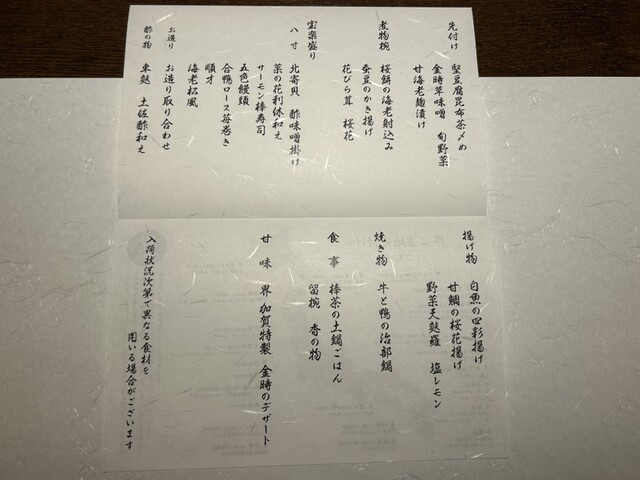 先付け 堅豆腐昆布茶〆め
金時草味噌 旬野菜
甘海老麹漬け
煮物椀 桜餅の海老射込み
蚕豆のかき揚げ
花びら茸 桜花
宝楽盛り
八寸 北寄貝 酢味噌掛け
菜の花利休和え
サーモン棒寿司
五色饅頭
合鴨ロース苺巻き
順才
海老松風
お造り お造り取り合わせ
酢の物 車麩 土佐酢和え
揚げ物 白魚の四彩揚げ
甘鯛の桜花揚げ
野菜天麩羅 塩レモン
焼き物 牛と鴨の治部鍋
食事 棒茶の土鍋ごはん
留椀 香の物
甘味 界加賀特製 金時のデザート
入荷状況次第で異なる食材を
用いる場合がございます